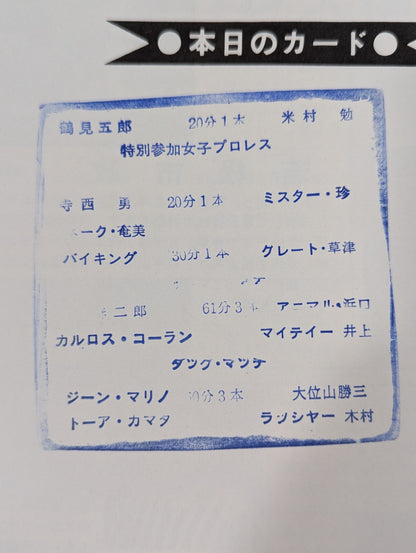 ●本日のカード●
鶴見五郎 20分1本 米村 勉
特別参加女子プロレス
寺西 勇 20分1本 ミスター・珍
ーク・奄美
バイキング 30分1本 グレート・草津
二郎 61分3本 アニマル・浜口
カルロス・コーラン マイテイー 井上
タッグ・マッチ
ジーン・マリノ 0分3本 大位山勝三
トーア・カマタ ラッシャー 木村